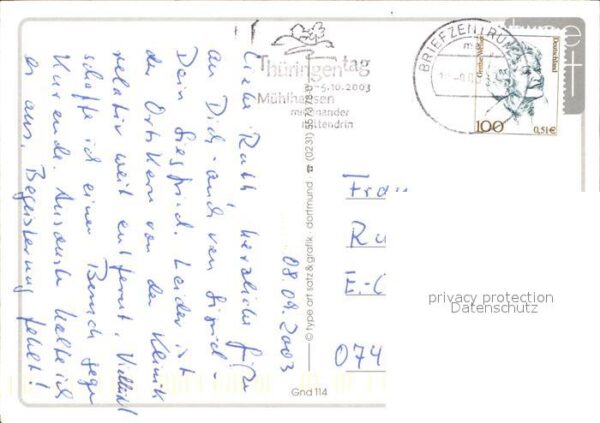 08.09.2003
Liebe Ruth herzliche Grüße
an Dich – auch von Sigrid –
Dein Siegfried. Leider ist
der Ortskern von der Klinik
relativ weit entfernt. Vielleicht
schaffe ich einen Besuch gegen
Kurende. Ansonsten halte ich
es aus. Begeisterung fehlt!
Thüringentag
-5.10.2003
Mühlhausen
miteinander
mittendrin
BRIEFZENTRUM
Deutschland
100
0,51€
© type art satz & grafik · dortmund ☎ (0231)
Gnd 114
Frau
Ru
E.-C
074
privacy protection
Datenschutz